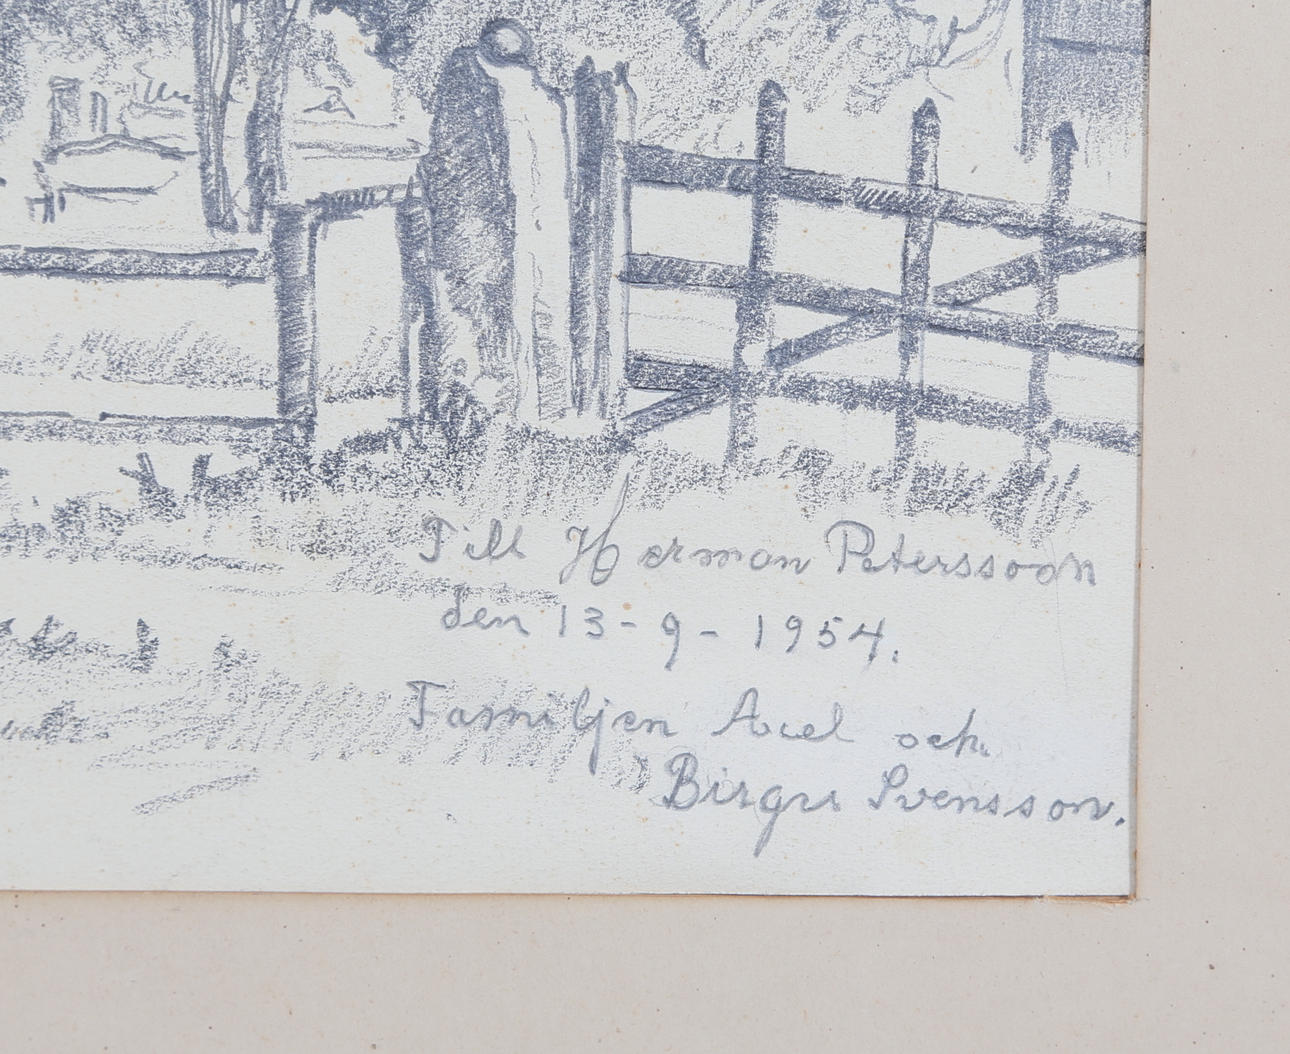 Till Herman Petersson
den 13-9-1954.
Familjen Axel och
Birger Svensson.